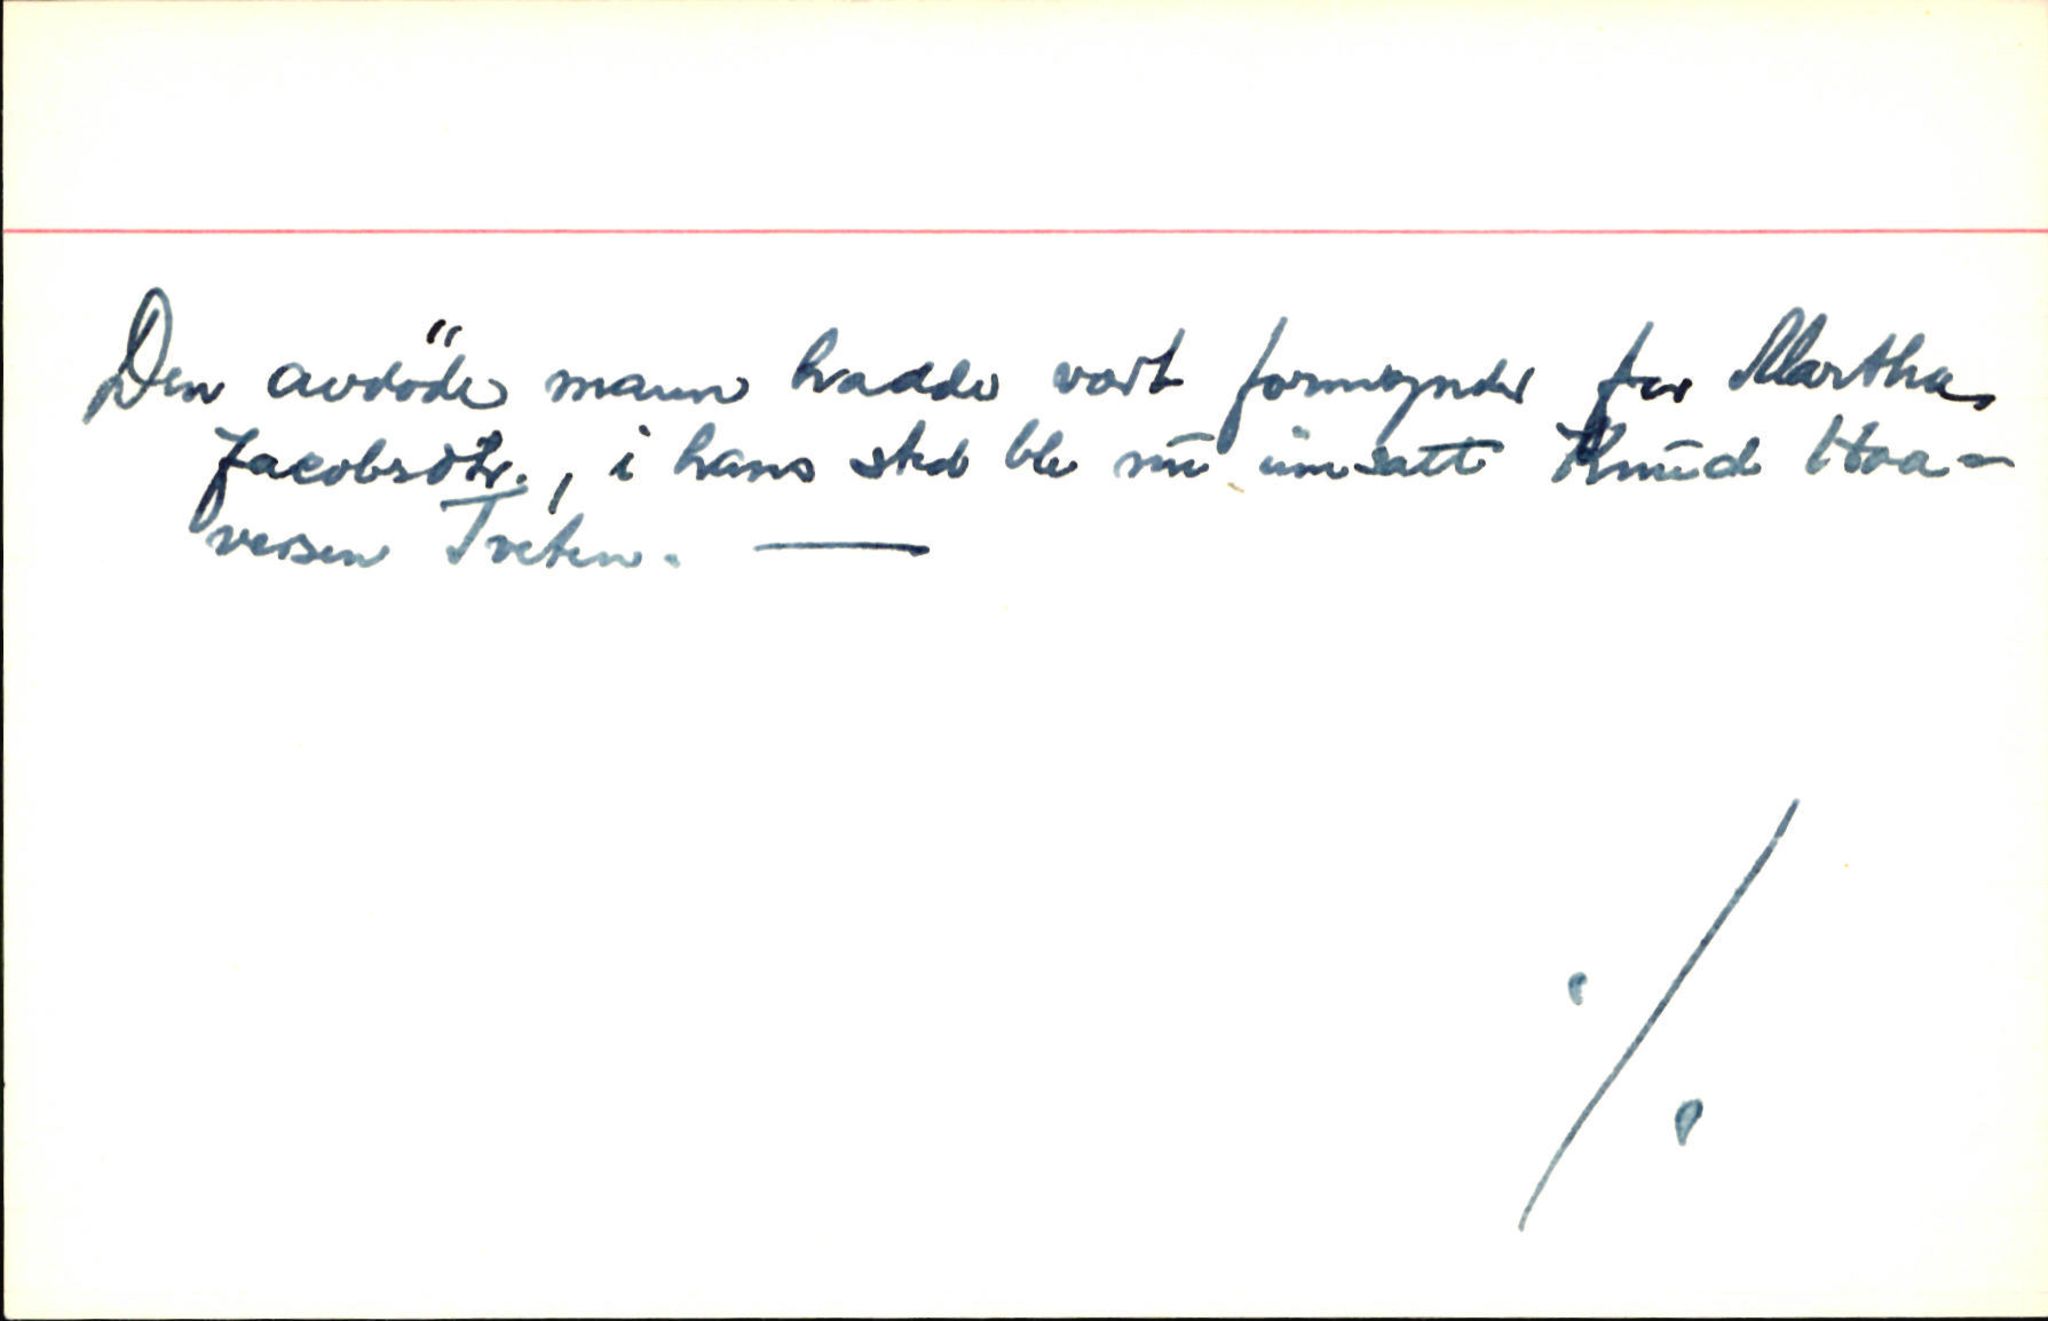 Den avdöde mann hadde vært formynder for Martha
Jacobsdtr., i hans sted ble nu innsatt Knud Haa-
versen Tveten. —
./.